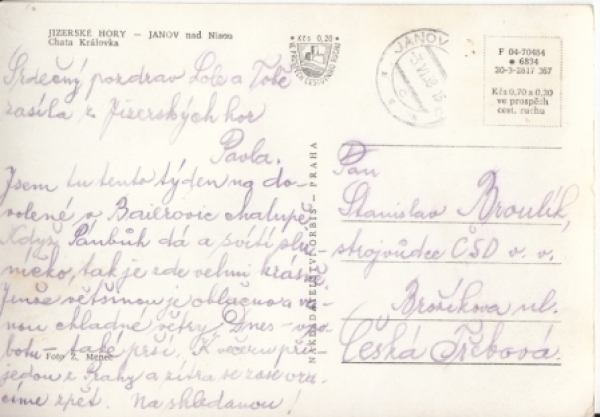 JIZERSKÉ HORY – JANOV nad Nisou
Chata Královka
Kčs 0,20
JANOV
F 04-70484
* 6834
20-3-2817 367
Kčs 0,70 a 0,20
ve prospěch
cest. ruchu
Srdečný pozdrav Lóče a Tobě
zasílá z Jizerských hor
Pavla.
Jsem tu tento týden na do-
volené v Baierovic chalupě.
Když Pánbůh dá a svítí slu-
níčko, tak je zde velmi krásně.
Jinše většinou je oblačno a va-
nou chladné větry. Dnes – so-
botu – také prší. K večeru při-
jedou z Prahy a zítra se zase vra-
címe zpět. Na shledanou!
Foto Z. Menec
NAKLADATELSTVÍ ORBIS – PRAHA
Pan
Stanislav Broulík,
strojvůdce ČSD v. v.
Brožíkova ul.
Česká Třebová.